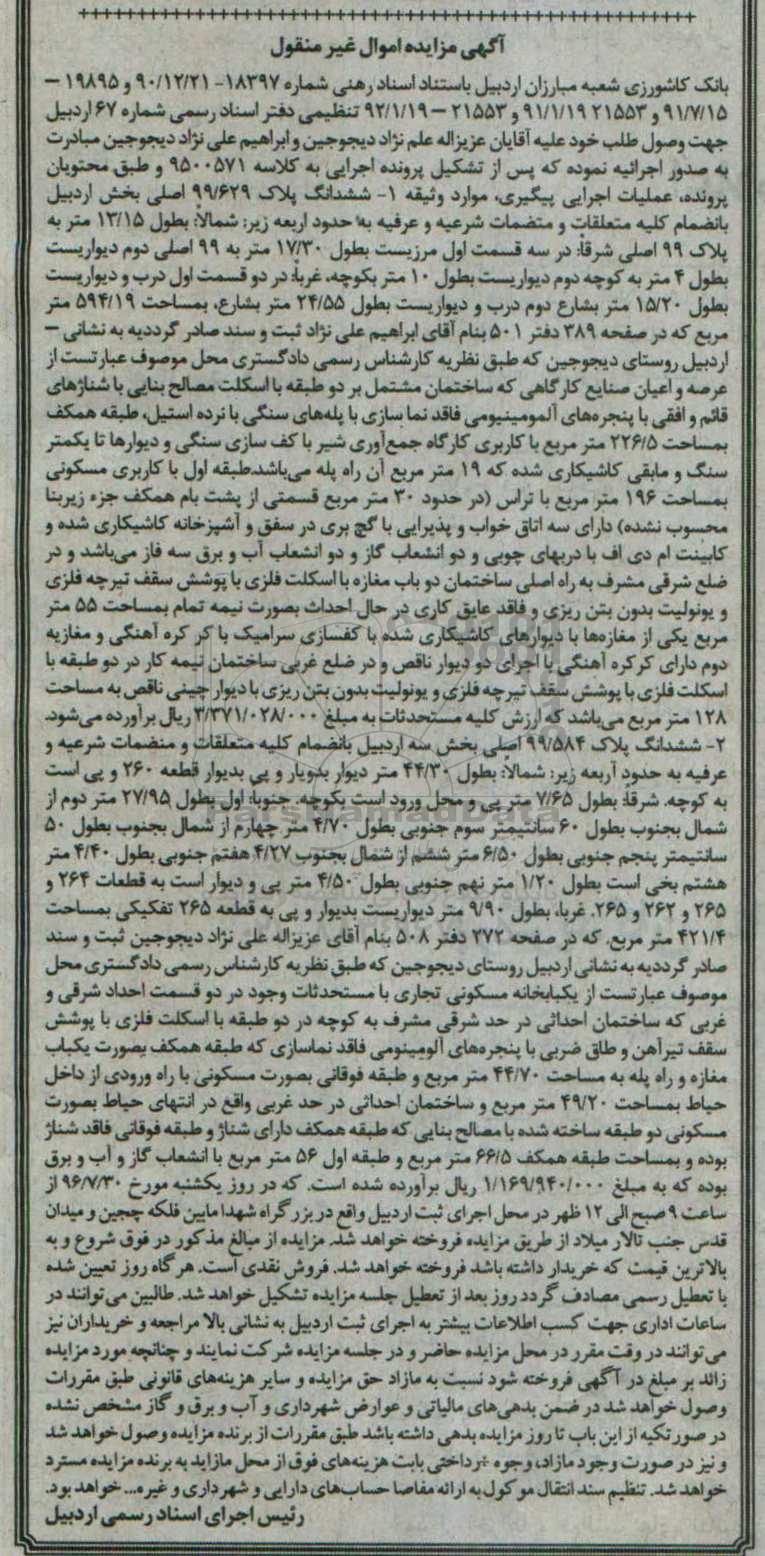 آگهی مزایده اموال غیر منقول
بانک کشاورزی شعبه مبارزان اردبیل باستناد اسناد رهنی شماره ۱۸۳۹۷- ۹۰/۱۲/۲۱ و ۱۹۸۹۵ –
۹۱/۷/۱۵ و ۲۱۵۵۳ ۹۱/۱/۱۹ و ۲۱۵۵۳ – ۹۲/۱/۱۹ تنظیمی دفتر اسناد رسمی شماره ۶۷ اردبیل
جهت وصول طلب خود علیه آقایان عزیزاله علم نژاد دیجوجین و ابراهیم علی نژاد دیجوجین مبادرت
به صدور اجرائیه نموده که پس از تشکیل پرونده اجرایی به کلاسه ۹۵۰۰۵۷۱ و طبق محتویان
پرونده، عملیات اجرایی پیگیری، موارد وثیقه ۱- ششدانگ پلاک ۹۹/۶۲۹ اصلی بخش اردبیل
بانضمام کلیه متعلقات و منضمات شرعیه و عرفیه به حدود اربعه زیر: شمالاً: بطول ۱۳/۱۵ متر به
پلاک ۹۹ اصلی شرقاً: در سه قسمت اول مرزیست بطول ۱۷/۳۰ متر به ۹۹ اصلی دوم دیواریست
بطول ۴ متر به کوچه دوم دیواریست بطول ۱۰ متر بکوچه، غرباً: در دو قسمت اول درب و دیواریست
بطول ۱۵/۲۰ متر بشارع دوم درب و دیواریست بطول ۲۴/۵۵ متر بشارع، بمساحت ۵۹۴/۱۹ متر
مربع که در صفحه ۳۸۹ دفتر ۵۰۱ بنام آقای ابراهیم علی نژاد ثبت و سند صادر گردیده به نشانی –
اردبیل روستای دیجوجین که طبق نظریه کارشناس رسمی دادگستری محل موصوف عبارتست از
عرصه و اعیان صنایع کارگاهی که ساختمان مشتمل بر دو طبقه با اسکلت مصالح بنایی با شناژهای
قائم و افقی با پنجره‌های آلمومینیومی فاقد نما سازی با پله‌های سنگی با نرده استیل، طبقه همکف
بمساحت ۲۲۶/۵ متر مربع با کاربری کارگاه جمع‌آوری شیر با کف سازی سنگی و دیوارها تا یکمتر
سنگ و مابقی کاشیکاری شده که ۱۹ متر مربع آن راه پله می‌باشد.طبقه اول با کاربری مسکونی
بمساحت ۱۹۶ متر مربع با تراس (در حدود ۳۰ متر مربع قسمتی از پشت بام همکف جزء زیربنا
محسوب نشده) دارای سه اتاق خواب و پذیرایی با گچ بری در سقف و آشپزخانه کاشیکاری شده و
کابینت ام دی اف با دربهای چوبی و دو انشعاب گاز و دو انشعاب آب و برق سه فاز می‌باشد و در
ضلع شرقی مشرف به راه اصلی ساختمان دو باب مغازه با اسکلت فلزی با پوشش سقف تیرچه فلزی
و یونولیت بدون بتن ریزی و فاقد عایق کاری در حال احداث بصورت نیمه تمام بمساحت ۵۵ متر
مربع یکی از مغازه‌ها با دیوارهای کاشیکاری شده با کفسازی سرامیک با کر کره آهنگی و مغازیه
دوم دارای کرکره آهنگی با اجرای دو دیوار ناقص و در ضلع غربی ساختمان نیمه کار در دو طبقه با
اسکلت فلزی با پوشش سقف تیرچه فلزی و یونولیت بدون بتن ریزی با دیوار چینی ناقص به مساحت
۱۲۸ متر مربع می‌باشد که ارزش کلیه مستحدثات به مبلغ ۳/۳۷۱/۰۲۸/۰۰۰ ریال برآورده می‌شود.
۲- ششدانگ پلاک ۹۹/۵۸۴ اصلی بخش سه اردبیل بانضمام کلیه متعلقات و منضمات شرعیه و
عرفیه به حدود اربعه زیر: شمالاً: بطول ۴۴/۳۰ متر دیوار بدویار و پی بدیوار قطعه ۲۶۰ و پی است
به کوچه. شرقاً: بطول ۷/۶۵ متر پی و محل ورود است بکوچه. جنوباً: اول بطول ۲۷/۹۵ متر دوم از
شمال بجنوب بطول ۶۰ سانتیمتر سوم جنوبی بطول ۴/۷۰ متر چهارم از شمال بجنوب بطول ۵۰
سانتیمتر پنجم جنوبی بطول ۶/۵۰ متر ششم از شمال بجنوب ۴/۲۷ هفتم جنوبی بطول ۴/۴۰ متر
هشتم بخی است بطول ۱/۲۰ متر نهم جنوبی بطول ۴/۵۰ متر پی و دیوار است به قطعات ۲۶۴ و
۲۶۵ و ۲۶۲ و ۲۶۵. غربا، بطول ۹/۹۰ متر دیواریست بدیوار و پی به قطعه ۲۶۵ تفکیکی بمساحت
۴۲۱/۴ متر مربع. که در صفحه ۲۷۲ دفتر ۵۰۸ بنام آقای عزیزاله علی نژاد دیجوجین ثبت و سند
صادر گردیده به نشانی اردبیل روستای دیجوجین که طبق نظریه کارشناس رسمی دادگستری محل
موصوف عبارتست از یکبابخانه مسکونی تجاری با مستحدثات وجود در دو قسمت احداد شرقی و
غربی که ساختمان احداثی در حد شرقی مشرف به کوچه در دو طبقه با اسکلت فلزی با پوشش
سقف تیرآهن و طاق ضربی با پنجره‌های آلومینومی فاقد نماسازی که طبقه همکف بصورت یکباب
مغازه و راه پله به مساحت ۴۴/۷۰ متر مربع و طبقه فوقانی بصورت مسکونی با راه ورودی از داخل
حیاط بمساحت ۴۹/۲۰ متر مربع و ساختمان احداثی در حد غربی واقع در انتهای حیاط بصورت
مسکونی دو طبقه ساخته شده با مصالح بنایی که طبقه همکف دارای شناژ و طبقه فوقانی فاقد شناژ
بوده و بمساحت طبقه همکف ۶۶/۵ متر مربع و طبقه اول ۵۶ متر مربع با انشعاب گاز و آب و برق
بوده که به مبلغ ۱/۱۶۹/۹۴۰/۰۰۰ ریال برآورده شده است. که در روز یکشنبه مورخ ۹۶/۷/۳۰ از
ساعت ۹ صبح الی ۱۲ ظهر در محل اجرای ثبت اردبیل واقع در بزرگراه شهدا مابین فلکه ججین و میدان
قدس جنب تالار میلاد از طریق مزایده فروخته خواهد شد. مزایده از مبالغ مذکور در فوق شروع و به
بالاترین قیمت که خریدار داشته باشد فروخته خواهد شد. فروش نقدی است. هر گاه روز تعیین شده
با تعطیل رسمی مصادف گردد روز بعد از تعطیل جلسه مزایده تشکیل خواهد شد. طالبین می‌توانند در
ساعات اداری جهت کسب اطلاعات بیشتر به اجرای ثبت اردبیل به نشانی بالا مراجعه و خریداران نیز
می‌توانند در وقت مقرر در محل مزایده حاضر و در جلسه مزایده شرکت نمایند و چنانچه مورد مزایده
زائد بر مبلغ در آگهی فروخته شود نسبت به مازاد حق مزایده و سایر هزینه‌های قانونی طبق مقررات
وصول خواهد شد در ضمن بدهی‌های مالیاتی و عوارض شهرداری و آب و برق و گاز مشخص نشده
در صورتکیه از این باب تا روز مزایده بدهی داشته باشد طبق مقررات از برنده مزایده وصول خواهد شد
و نیز در صورت وجود مازاد، وجوه پرداختی بابت هزینه‌های فوق از محل مازاید به برنده مزایده مسترد
خواهد شد. تنظیم سند انتقال موکول به ارائه مفاصا حساب‌های دارایی و شهرداری و غیره... خواهد بود.
رئیس اجرای اسناد رسمی اردبیل
ParsNamadData